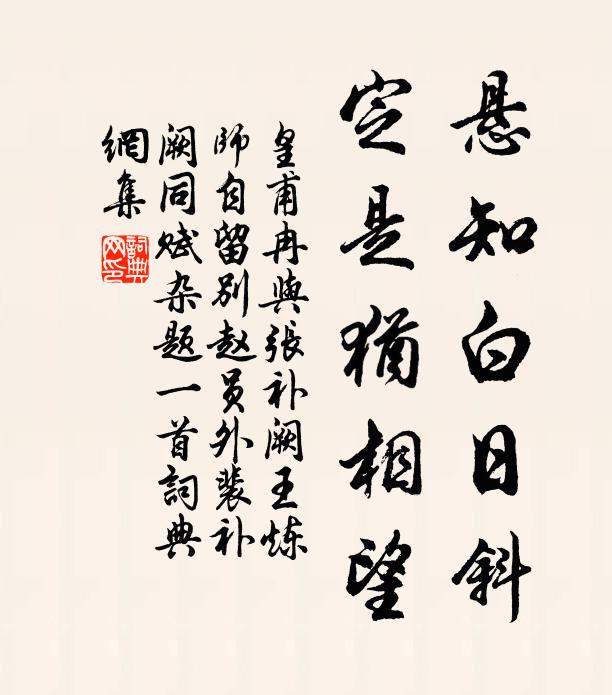 悬知白日斜
定是犹相望
皇甫冉與張补阙王炼
师自留别赵员外裴补
阙同赋杂题一首詞典
網集
詞典
网印